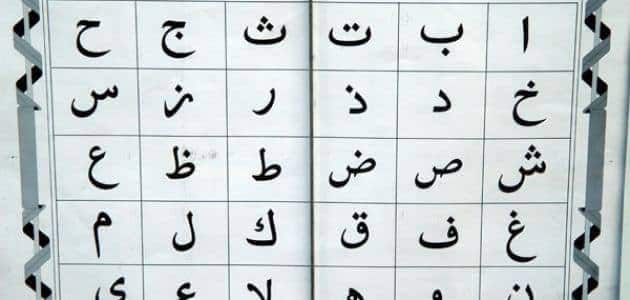 ا ب ت ث ج ح
خ د ذ ر ز س
ش ص ض ط ظ ع
غ ف ق ك ل م
ن و ه لا ء ي